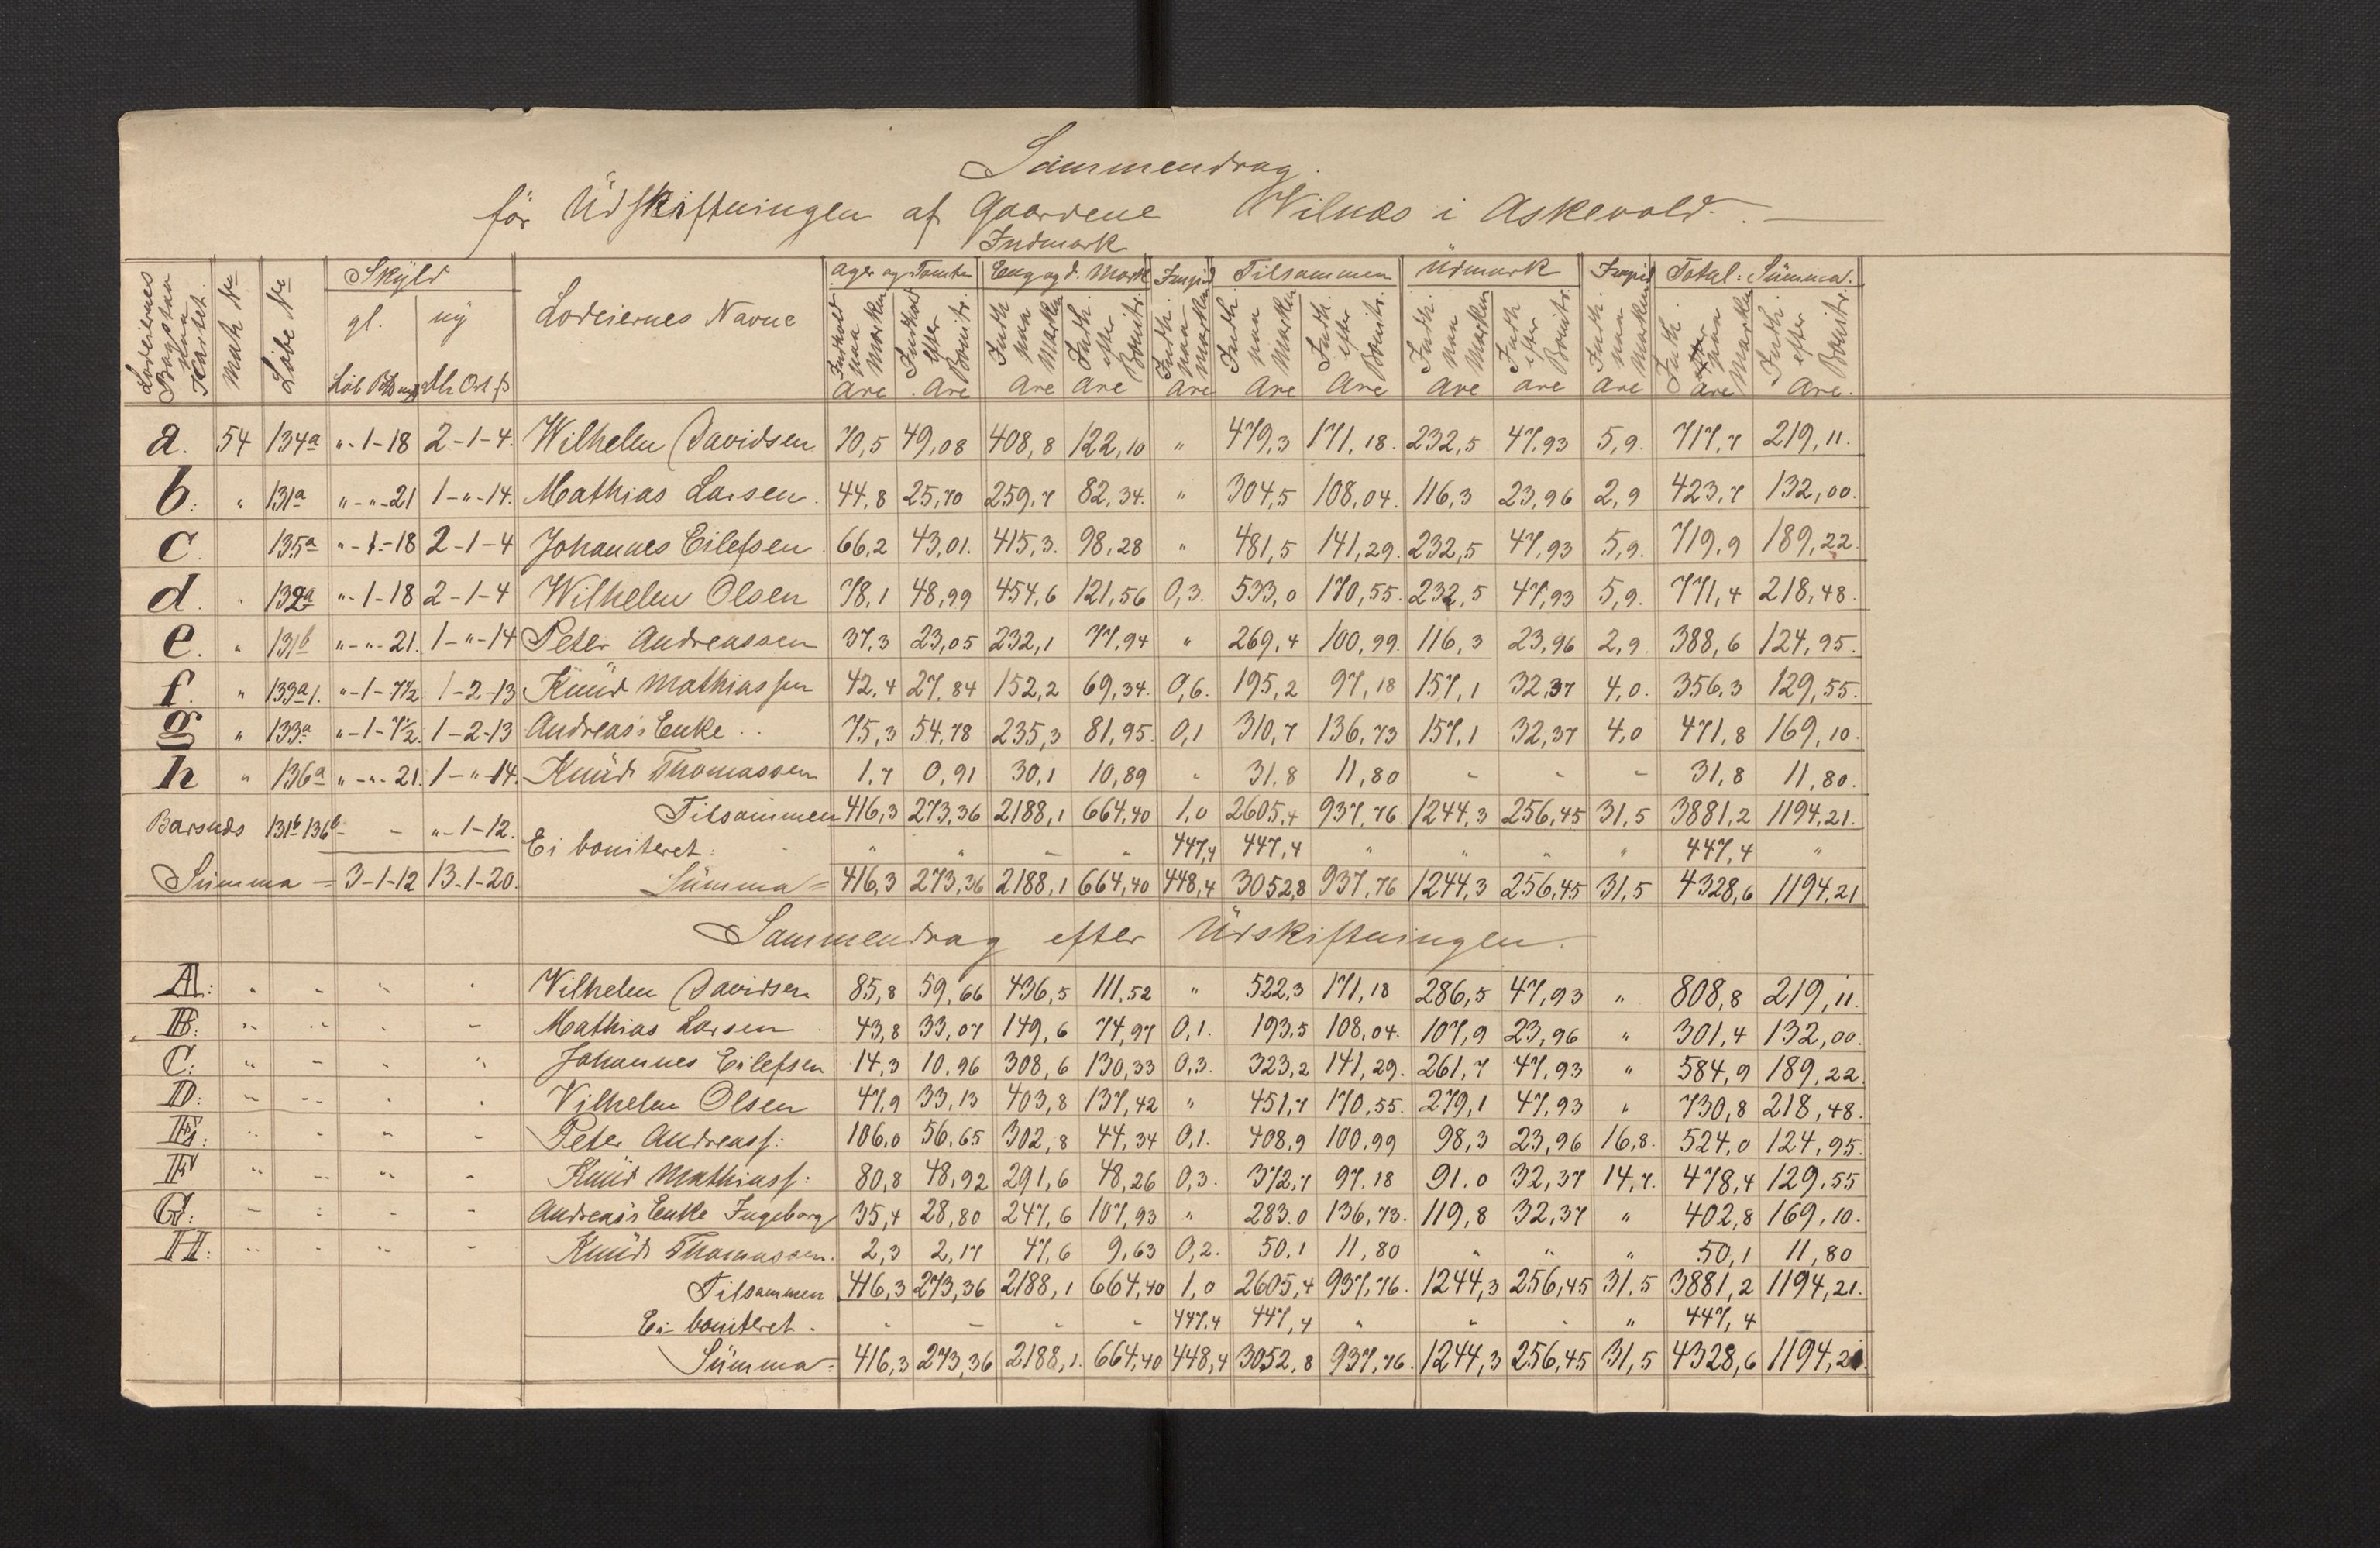 Sammendrag.
för Üdskiftningen af Gaardene Wilnæs i Askevold.
Indmark
Lodeiernes Bogstav paa Kartet. | Matr No | Löbe No | Skÿld | Lodeiernes Navne | Ager og Tomter | Eng og d. Mark | Impid | Tilsammen | Üdmark | Impid | Total: Sümma.
gl. | nÿ
Indhold paa Marken | Indhold efter Bonitr. | Indh. paa Marken | Indh. efter Bonitr. | Indh. paa Marken | Indh. paa Marken | Indh. efter Bonitr. | Indh. paa Marken | Indh. efter Bonitr. | Indh. paa Marken | Indh. paa Marken | Indh. efter Bonitr.
Löb | Ort ß | Are | Are | Are | Are | Are | Are | Are | Are | Are | Are | Are | Are.
a. 54 134a „-1-18 2-1-4. Wilhelm Davidsen 70,5 49,08 408,8 122,10 „ 479,3 171,18. 232,5 47,93 5,9. 717,7 219,11.
b. „ 131a „-„-21 1-„-14. Mathias Larsen. 44,8 25,70 259,7 82,34. „ 304,5 108,04. 116,3 23,96 2,9 423,7 132,00.
c. 135a „-1-18 2-1-4 Johannes Eilefsen. 66,2 43,01. 415,3. 98,28 „ 481,5 141,29. 232,5 47,93 5,9. 719,9 189,22.
d. „ 132a „-1-18 2-1-4 Wilhelm Olsen 78,1 48,99 454,6 121,56 0,3. 533,0 170,55. 232,5 47,93 5,9. 771,4 218,48.
e. „ 131b „-„-21. 1-„-14 Peter Andreassen 37,3 23,05 232,1 77,94 „ 269,4 100,99. 116,3 23,96 2,9 388,6 124,95.
f. „ 133a1. „-1-7½ 1-2-13 Knüd Mathiassen 42,4 27,84 152,2 69,34. 0,6. 195,2 97,18 157,1 32,37 4,0. 356,3 129,55.
g „ 133a „-1-7½. 1-2-13 Andreas's Enke.. 75,3 54,78 235,3 81,95. 0,1 310,7 136,73 157,1 32,37 4,0 471,8 169,10.
h „ 136a „-„-21. 1-„-14. Knüdt Thomassen 1,7 0,91 30,1 10,89 „ 31,8 11,80 - - - 31,8 11,80.
Barsnæs 131b 136b - - „-1-12. Tilsammen 416,3 273,36 2188,1 664,40 1,0 2605,4 937,76 1244,3 256,45 31,5 3881,2 1194,21.
Ei boniteret: „ „ - „ 447,4 447,4 „ „ „ „ 447,4 „
Sümma = 3-1-12 13-1-20. Sümma = 416,3 273,36 2188,1 664,40 448,4 3052,8 937,76 1244,3 256,45 31,5 4328,6 1194,21
Sammendrag efter Üdskiftningen.
A: „ „ „ „ Wilhelm Davidsen 85,8 59,66 436,5 111,52 „ 522,3 171,18 286,5 47,93 „ 808,8 219,11.
B: „ „ „ - Mathias Larsen 43,8 33,07 149,6 74,97 0,1. 193,5 108,04. 107,9 23,96 „ 301,4 132,00.
C: „ - „ „ Johannes Eilefsen 14,3 10,96 308,6 130,33 0,3. 323,2 141,29. 261,7 47,93 „ 584,9 189,22.
D: „ „ „ „ Vilhelm Olsen 47,9 33,13 403,8 137,42 „ 451,7 170,55. 279,1 47,93 „ 730,8 218,48.
E: „ - „ - Peter Andreass: 106,0 56,65 302,8 44,34 0,1. 408,9 100,99 98,3 23,96 16,8. 524,0 124,95.
F „ „ „ - Knüd Mathiass: 80,8 48,92 291,6 48,26 0,3. 372,7 97,18 91,0 32,37 14,7. 478,4 129,55
G: - „ - - Andreas's Enke Ingeborg 35,4 28,80 247,6 107,93 „ 283,0 136,73. 119,8 32,37 „ 402,8 169,10.
H: „ - „ - Knüdt Thomassen. 2,3 2,17 47,6 9,63 0,2. 50,1 11,80 „ „ „ 50,1 11,80
Tilsammen 416,3 273,36 2188,1 664,40 1,0 2605,4 937,76. 1244,3 256,45 31,5 3881,2 1194,21.
Ei boniteret. - - - - 447,4 447,4 „ „ - „ 447,4
Sümma: 416,3 273,36 2188,1. 664,40 448,4 3052,8 937,76. 1244,3 256,45 31,5 4328,6 1194,21.